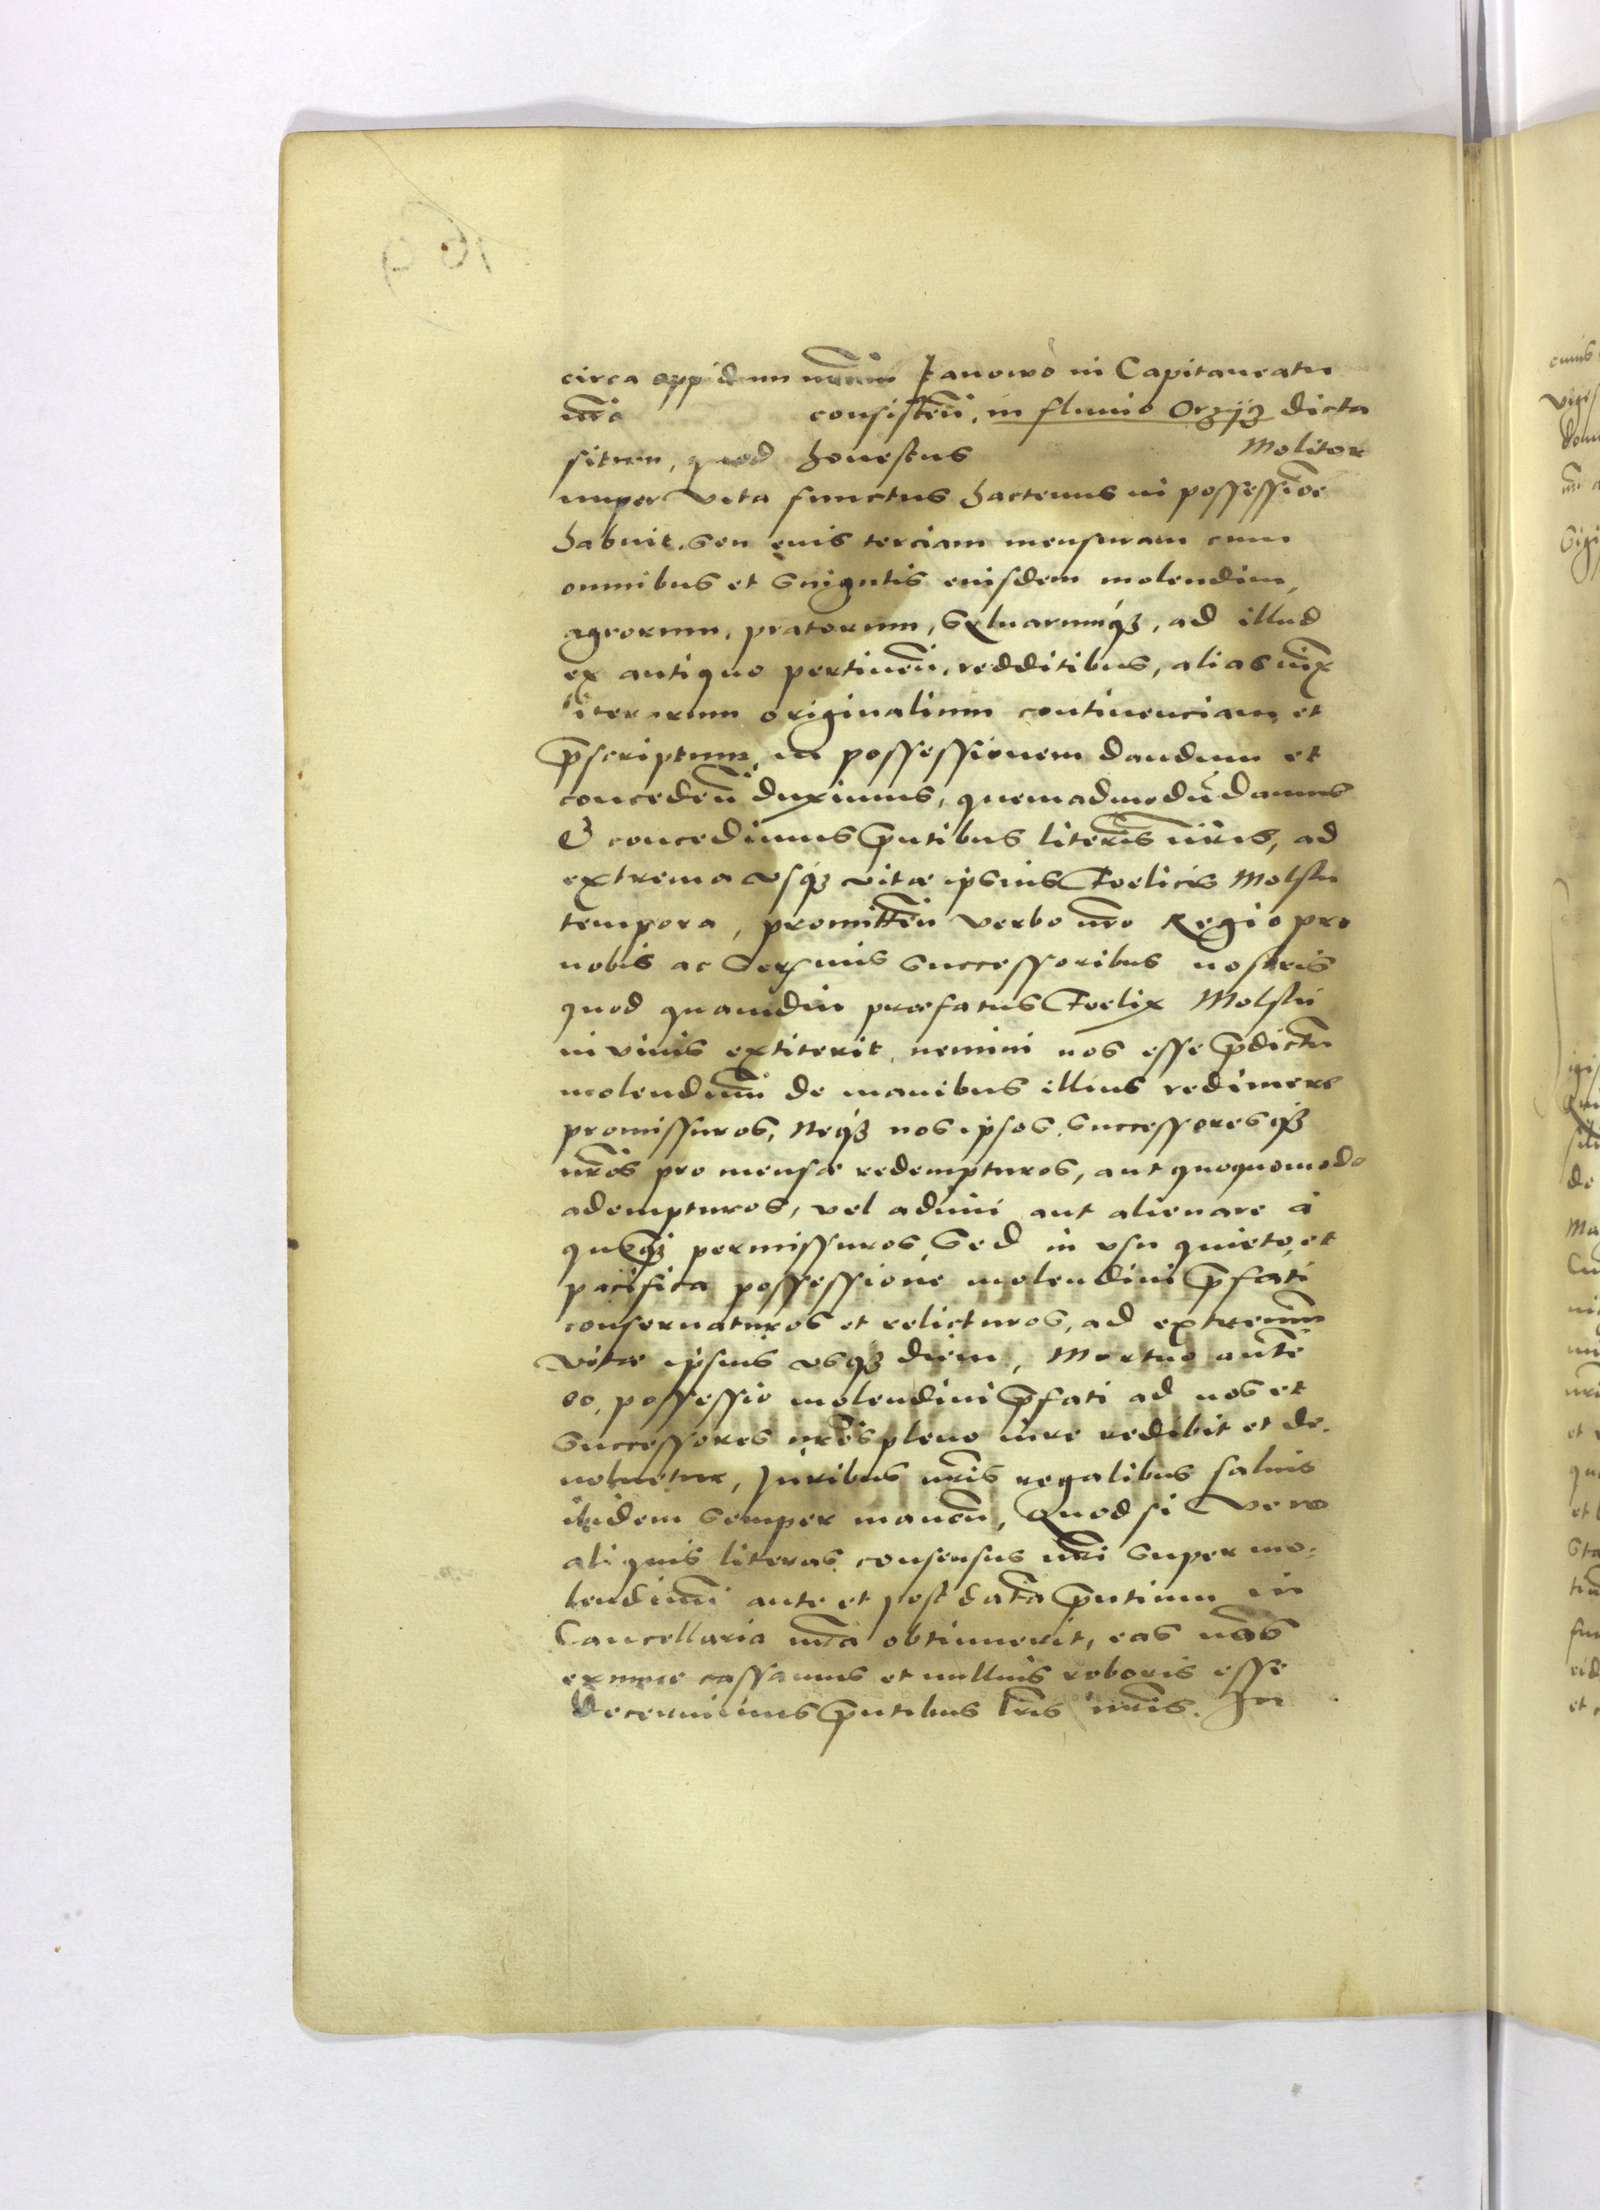 circa oppidum nrum Janowo in Capitaneatu
nro consisten̄, in fluuio Orzÿcz dicta
situm, quod honestus Molitor
nuper vita functus hactenus in possessioē
habuit. Seu eius terciam mensuram cum
omnibus et singulis eiusdem molendini,
agrorum, pratorum, Syluarumq́ꝫ, ad illud
ex antiquo pertinen̄. redditibus, alias iuxͣ
literarum originalium continenciam et
p̄scriptum, in possessionem dandum et
conceden̄ duximus, quemadmodū damus
& concedimus p̄ntibus literis nr̄is, ad
extrema vsq́ꝫ vitæ ipsius Foelicis Molski
tempora, promitten̄ verbo nro Regio pro
nobis ac Serxmis Successoribus nostris
quod quamdiu præfatus Foelix Molski
in viuis extiterit, nemini nos esse p̄dictū
molendinū de manibus illius redimere
promissuros, Neq́ꝫ nos ipsos, Successoresq́ꝫ
nr̄os pro mensæ redempturos, aut quoquomodo
adempturos, vel adimi aut alienare á
permissuros, Sed in vsu quieto, et
pacifica possessione molendini p̄fati
conseruaturos et relicturos, ad extremū
vitæ ipsius vsq́ꝫ diem, Mortuo autē
eo, possessio molendini p̄fati ad nos et
Successores nr̄os pleno iure redibit et de-
uoluetur, Juribus nr̄is regalibus saluis
ibidem semper manen̄, Quod si vero
aliquis literas consensus nr̄i super mo-
lendinū ante et post data p̄ntium in
Cancellaria nr̄a obtinuerit, eas
ex nunc cassamus et nullius roboris esse
decernimus p̄ntibus lr̄is nr̄is. In